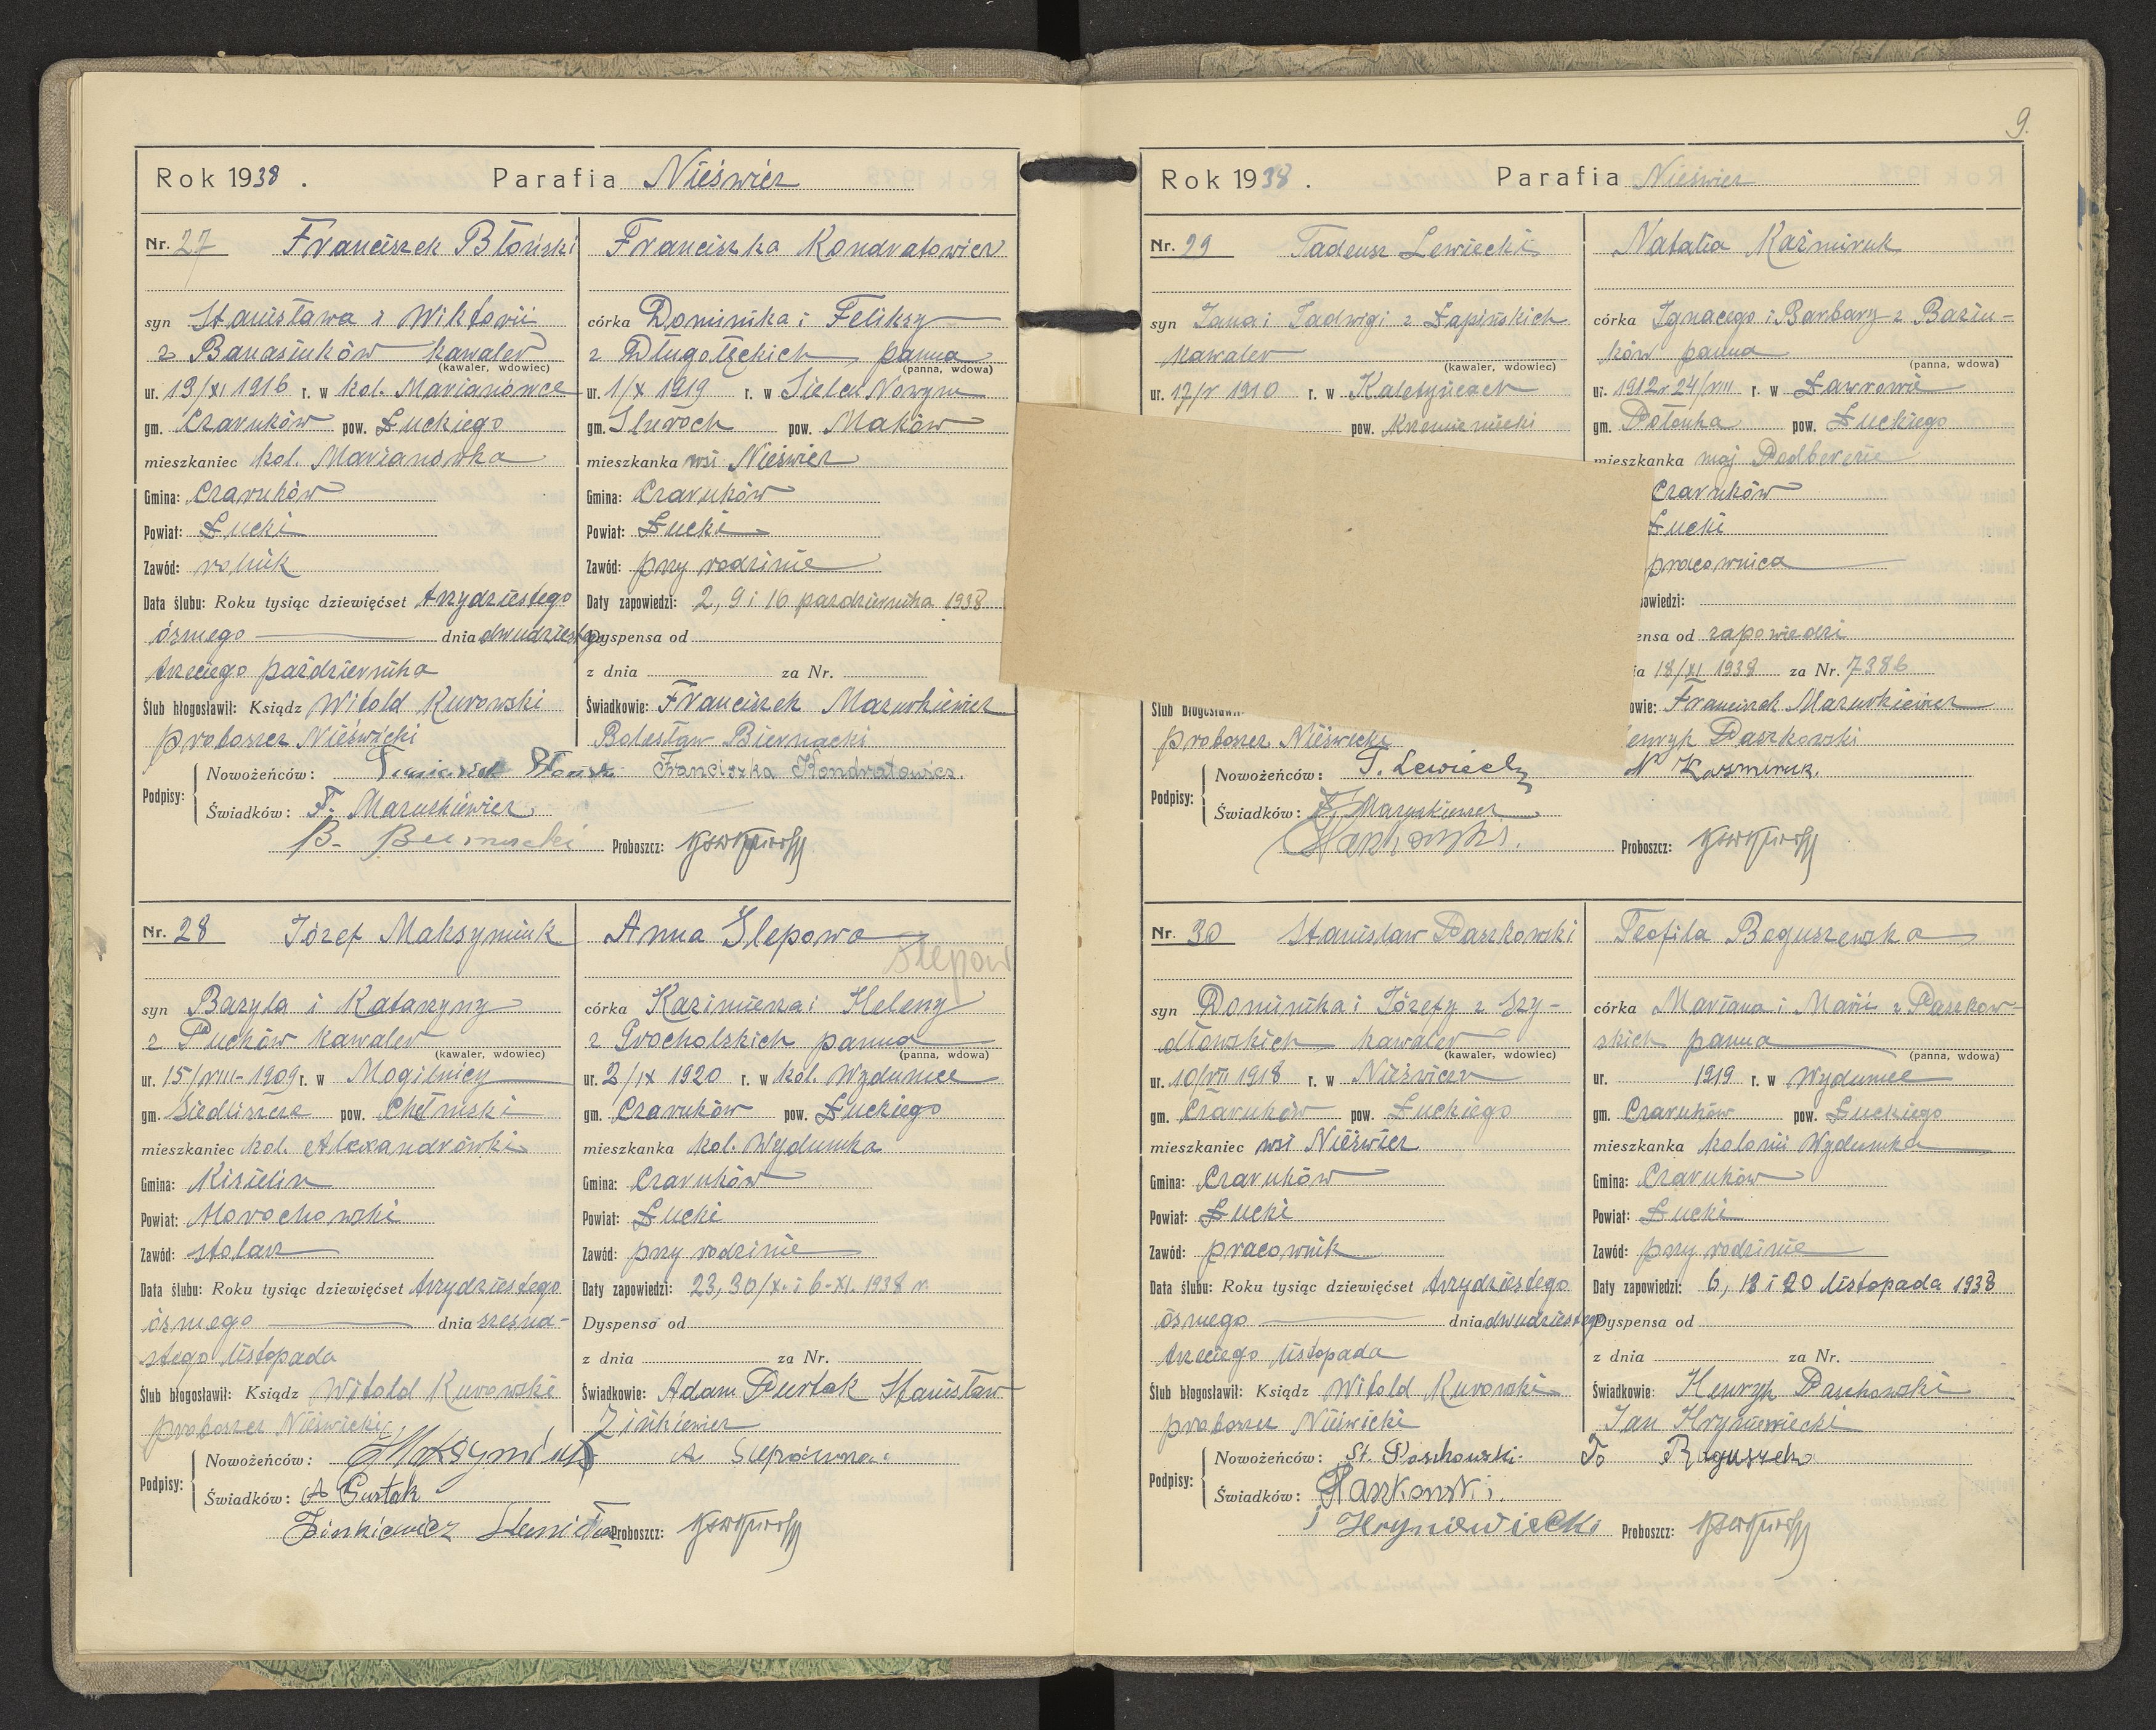 Rok 1938. Parafia Nieśwież
Nr. 27 Franciszek Błoński
syn Stanisława i Wiktorii
z Banasiuków kawaler
(kawaler, wdowiec)
ur. 19/XI 1916 r. w kol. Marianówce
gm. Czaruków pow. Łuckiego
mieszkaniec kol. Marianówka
Gmina: Czaruków
Powiat: Łucki
Zawód: rolnik
Data ślubu: Roku tysiąc dziewięćset trzydziestego
ósmego dnia dwudziestego
trzeciego października
Ślub błogosławił: Ksiądz Witold Kurowski
proboszcz Nieświcki
Franciszka Kondratowicz
córka Dominika i Feliksy
z Długołęckich, panna
(panna, wdowa)
ur. 1/X 1919 r. w Sielcu Nowym
gm. pow. Maków
mieszkanka wsi Nieświcz
Gmina: Czaruków
Powiat: Łucki
Zawód: przy rodzinie
Daty zapowiedzi: 2, 9 i 16 października 1938
Dyspensa od
z dnia za Nr.
Świadkowie: Franciszek Mazurkiewicz
Bolesław Biernacki
Podpisy: Nowożeńców: Franciszek Błoński Franciszka Kondratowicz.
Świadków: F. Mazurkiewicz
B. Biernacki Proboszcz:
Nr. 28 Józef Maksymiuk
syn Bazyla i Katarzyny
z Puchów kawaler
(kawaler, wdowiec)
ur. 15/VIII-1909 r. w Mogilnicy
gm. Siedliszcze pow. Chełmski
mieszkaniec kol. Alexandrówki
Gmina: Kisielin
Powiat: Horochowski
Zawód: stolarz
Data ślubu: Roku tysiąc dziewięćset trzydziestego
ósmego dnia szesna-
stego listopada
Ślub błogosławił: Ksiądz Witold Kurowski
proboszcz Nieświcki
Anna Ślepowo
Slepow
córka Kazimierza i Heleny
z Grocholskich panna
(panna, wdowa)
ur. 2/IX 1920 r. w kol. Wydumce
gm. Czaruków pow. Łuckiego
mieszkanka kol. Wydumka
Gmina: Czaruków
Powiat: Łucki
Zawód: przy rodzinie
Daty zapowiedzi: 23, 30/X. i 6-XI. 1938 r.
Dyspensa od
z dnia za Nr.
Świadkowie: Adam Purtak Stanisław
Zinkiewicz
Podpisy: Nowożeńców: J Maksymiuk A Slepówna
Świadków: A Purtak
Zinkiewicz Stanisław Proboszcz:
9.
Rok 1938. Parafia Nieświcz
Nr. 29 Tadeusz Lewiecki
syn Jana i Jadwigi z Łapińskich
kawaler
(kawaler, wdowiec)
ur. 17/V 1910 r. w
pow. Krzemieniecki
Ślub błogosławił:
proboszcz Nieświcki
Natalia Kaźmiruk
córka Ignacego i Barbary z Baziu-
ków panna
(panna, wdowa)
ur. 1912 r. 24/VIII r. w Ławrowie
gm. Połonka pow. Łuckiego
mieszkanka maj. Podberezie
Czaruków
Łucki
pracownica
powiedzi:
ensa od zapowiedzi
ia 18/XI 1938 za Nr. 7386
owie: Franciszek Mazurkiewicz
enryk Paszkowski
Podpisy: Nowożeńców: T. Lewiecki N Kazmiruk.
Świadków: F. Mazurkiewicz
HPaszkowski. Proboszcz:
Nr. 30 Stanisław Paszkowski
syn Dominika i Józefy z Szy-
dłowskich kawaler
(kawaler, wdowiec)
ur. 10/VII 1918 r. w Nieświczu
gm. Czaruków pow. Łuckiego
mieszkaniec wsi Nieświcz
Gmina: Czaruków
Powiat: Łucki
Zawód: pracownik
Data ślubu: Roku tysiąc dziewięćset trzydziestego
ósmego dnia dwudziestego
trzeciego listopada
Ślub błogosławił: Ksiądz Witold Kurowski
proboszcz Nieświcki
Teofila Boguszewska
córka Mariana i Marii z Paszkow-
skich panna
(panna, wdowa)
ur. 1919 r. w Wydumce
gm. Czaruków pow. Łuckiego
mieszkanka kolonii Wydumka
Gmina: Czaruków
Powiat: Łucki
Zawód: przy rodzinie
Daty zapowiedzi: 6, 13 i 20 listopada 1938
Dyspensa od
z dnia za Nr.
Świadkowie: Henryk Paszkowski
Jan Hryniewiecki
Podpisy: Nowożeńców: St. Paszkowski
Świadków: HPaszkowski.
J Hryniewiecki Proboszcz: